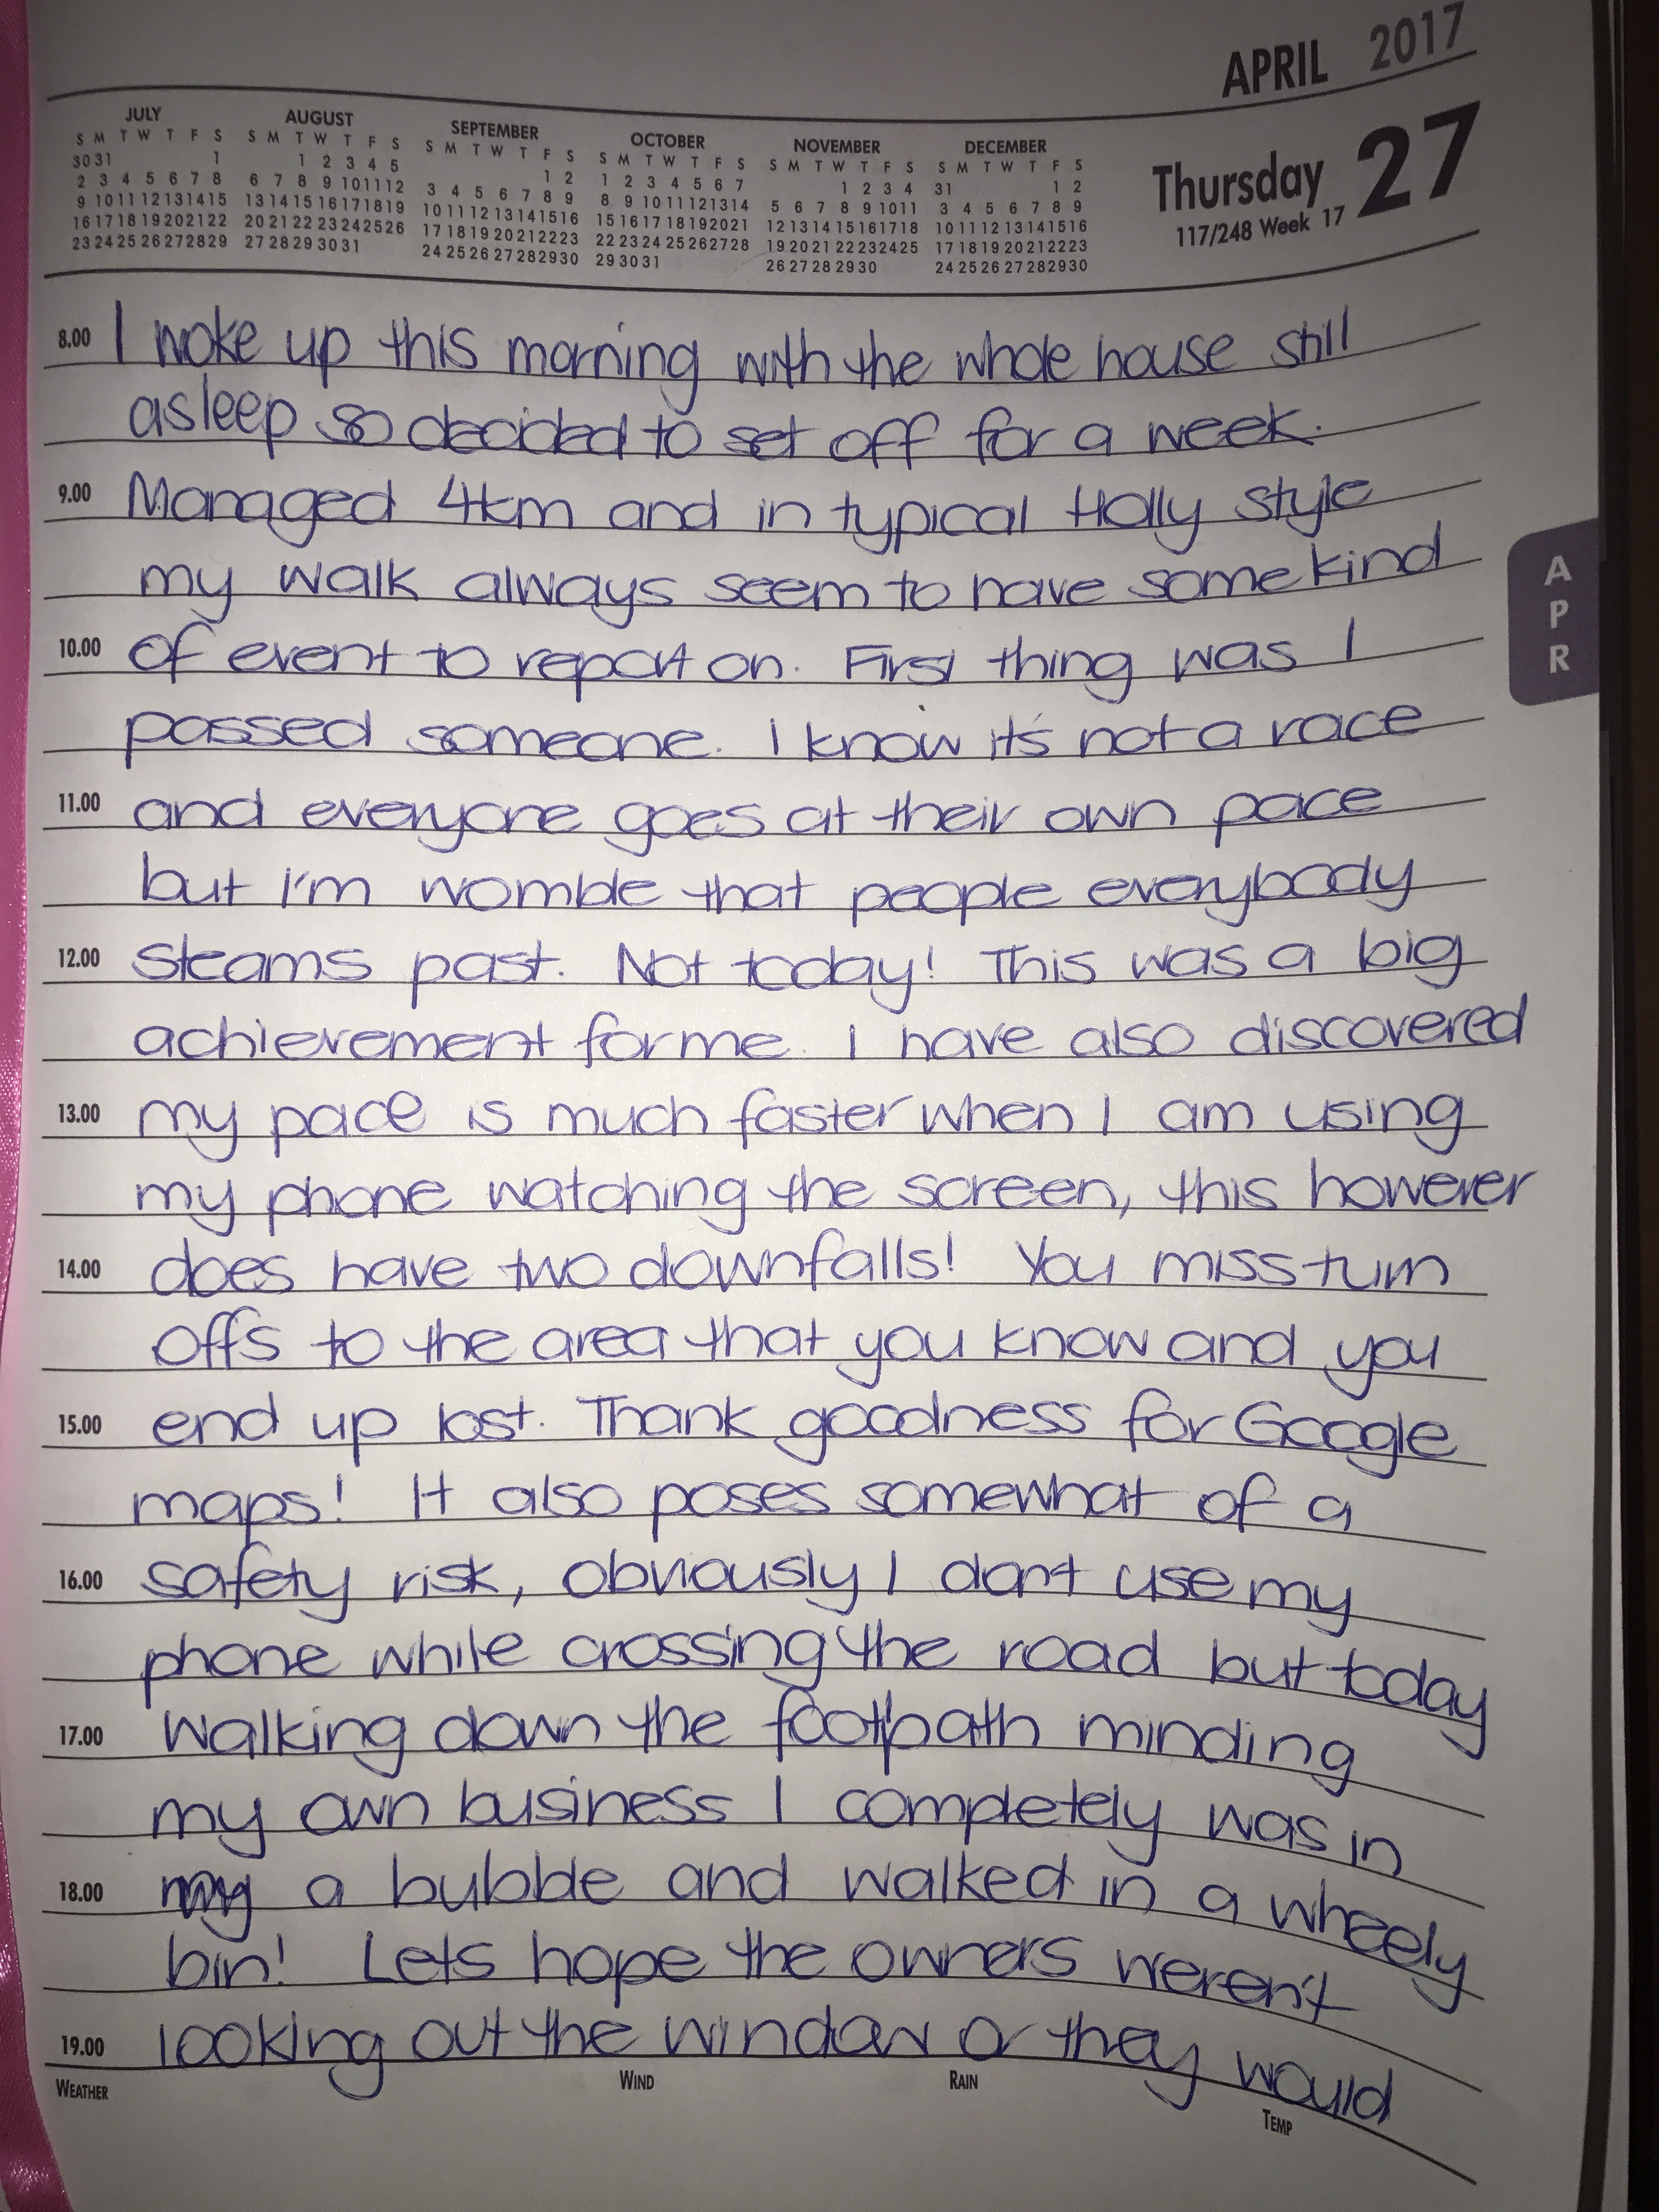 APRIL 2017
Thursday 27
117/248 Week 17
JULY
S M T W T F S
30 31 1
2 3 4 5 6 7 8
9 10 11 12 13 14 15
16 17 18 19 20 21 22
23 24 25 26 27 28 29
AUGUST
S M T W T F S
1 2 3 4 5
6 7 8 9 10 11 12
13 14 15 16 17 18 19
20 21 22 23 24 25 26
27 28 29 30 31
SEPTEMBER
S M T W T F S
1 2
3 4 5 6 7 8 9
10 11 12 13 14 15 16
17 18 19 20 21 22 23
24 25 26 27 28 29 30
OCTOBER
S M T W T F S
1 2 3 4 5 6 7
8 9 10 11 12 13 14
15 16 17 18 19 20 21
22 23 24 25 26 27 28
29 30 31
NOVEMBER
S M T W T F S
1 2 3 4
5 6 7 8 9 10 11
12 13 14 15 16 17 18
19 20 21 22 23 24 25
26 27 28 29 30
DECEMBER
S M T W T F S
31 1 2
3 4 5 6 7 8 9
10 11 12 13 14 15 16
17 18 19 20 21 22 23
24 25 26 27 28 29 30
8.00 I woke up this morning with the whole house still
asleep so decided to set off for a week.
9.00 Managed 4km and in typical Holly style
my walk always seem to have some kind
10.00 of event to report on. First thing was I
passed someone. I know it's not a race
11.00 and everyone goes at their own pace
but I'm womble that people everybody
12.00 steams past. Not today! This was a big
achievement for me. I have also discovered
13.00 my pace is much faster when I am using
my phone watching the screen, this however
14.00 does have two downfalls! You miss turn
offs to the area that you know and you
15.00 end up lost. Thank goodness for Google
maps! It also poses somewhat of a
16.00 safety risk, obviously I dont use my
phone while crossing the road but today
17.00 walking down the footpath minding
my own business I completely was in
18.00 my a bubble and walked in a wheely
bin! Lets hope the owners weren't
19.00 looking out the window or they would
WEATHER WIND RAIN TEMP
APR